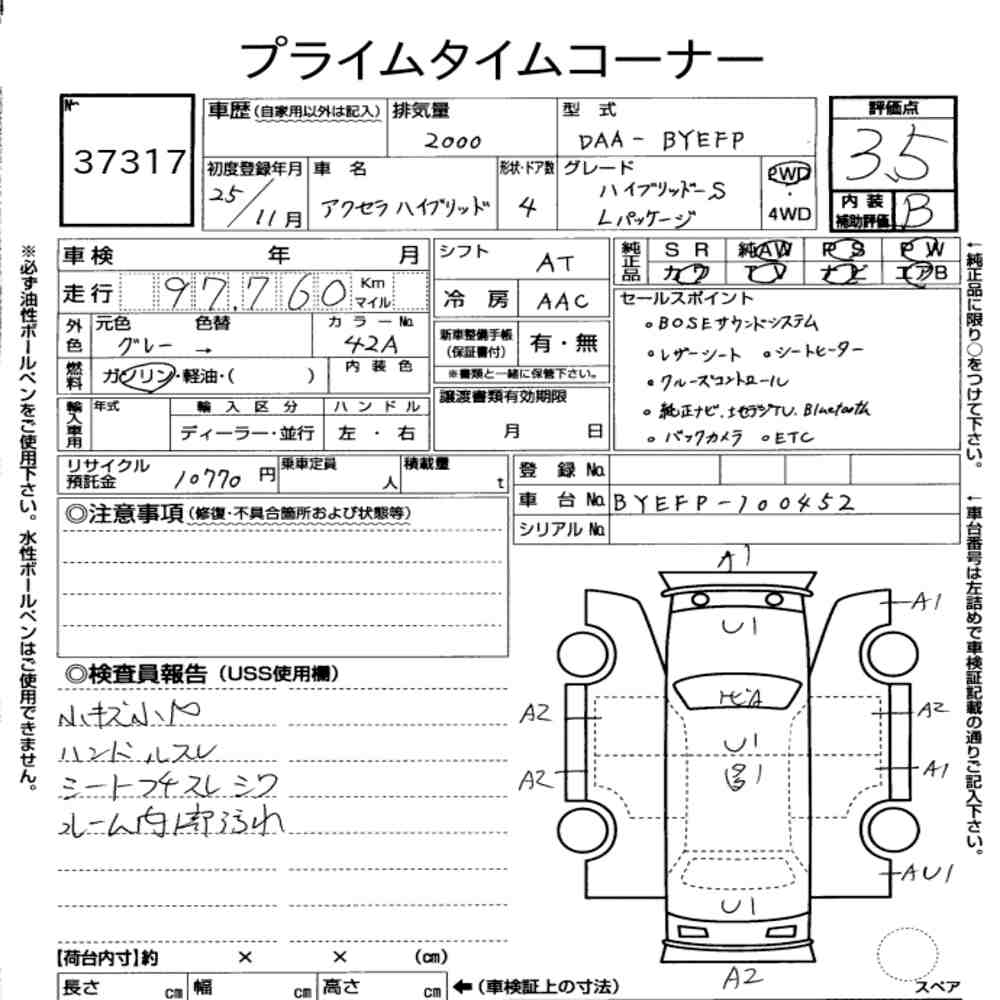 プライムタイムコーナー
№
37317
車歴(自家用以外は記入)
排気量
2000
型 式
DAA-BYEFP
評価点
3.5
初度登録年月
25/11月
車 名
アクセラ ハイブリッド
形状・ドア数
4
グレード
ハイブリッド-S
Lパッケージ
2WD
・
4WD
内装補助評価
B
車検 年 月
走行 97,760 Km マイル
シフト AT
冷房 AAC
純正品 SR 純AW PS PW
カワ TV ナビ エアB
外色 元色 色替
グレー →
カラーNo.
42A
燃料 ガソリン・軽油・( )
内装色
新車整備手帳(保証書付) 有・無
※書類と一緒に保管下さい。
セールスポイント
。BOSEサウンドシステム
。レザーシート 。シートヒーター
。クルーズコントロール
。純正ナビ.地デジTV.Bluetooth
。バックカメラ 。ETC
輸入車用 年式 輸入区分 ハンドル
ディーラー・並行 左・右
譲渡書類有効期限
月 日
リサイクル預託金 10770円
乗車定員 人
積載量 t
登録No.
車台No. BYEFP-100452
シリアルNo.
◎注意事項(修復・不具合箇所および状態等)
◎検査員報告(USS使用欄)
小キズ小凹
ハンドルスレ
シートフチスレ シワ
A1
U1
A1
A2
U1
A2
A2
A1
AU1
U1
A2
【荷台内寸】約 × × (cm)
長さ cm 幅 cm 高さ cm ←(車検証上の寸法)
スペア
※必ず油性ボールペンをご使用下さい。水性ボールペンはご使用できません。
←純正品に限り○をつけて下さい。
←車台番号は左詰めで車検証記載の通りご記入下さい。